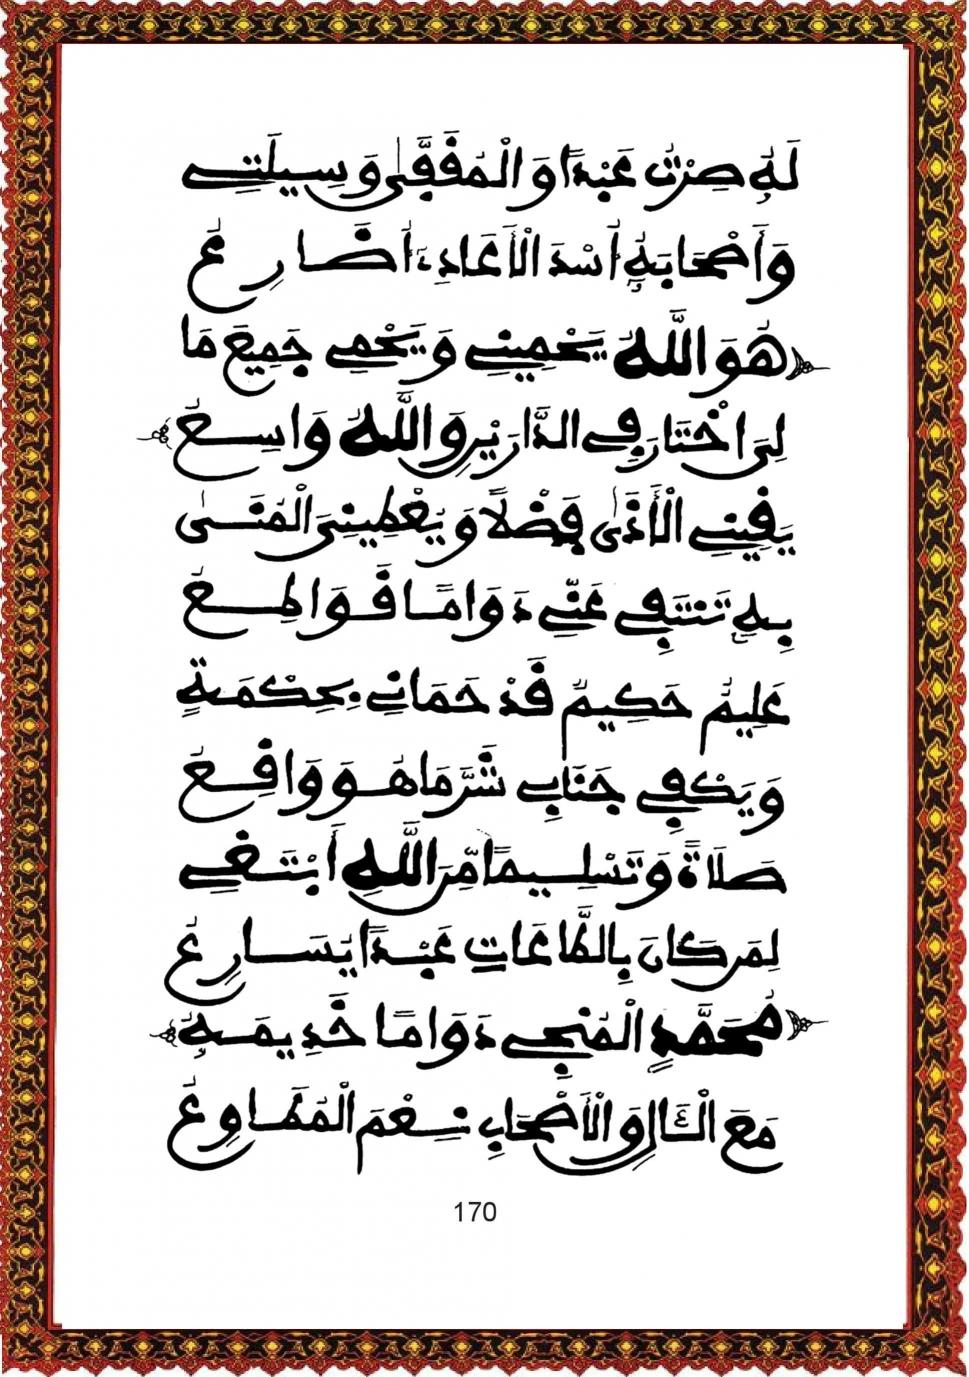 لَهُ صِرْتُ عَبْدًا وَالْمُقَفَّى وَسِيلَتِي
وَأَصْحَابَهُ أُسْدَ الْأَعَادِي أُضَارِعُ
هُوَ اللَّهُ يَحْمِينِي وَيَحْمِي جَمِيعَ مَا
لِيَ اخْتَارَ فِي الدَّارَيْنِ وَاللَّهُ وَاسِعُ
يَقِينِي الْأَذَى فَضْلًا وَيُعْطِينِيَ الْمُنَى
بِهِ تَنْتَفِي عَنِّي دَوَامًا قَوَاطِعُ
عَلِيمٌ حَكِيمٌ قَدْ حَمَانِي بِحِكْمَةٍ
وَيَكْفِي جَنَابِي شَرَّ مَا هُوَ وَاقِعُ
صَلَاةً وَتَسْلِيمًا مِّنَ اللَّهِ أَبْتَغِي
لِمَن كَانَ بِالطَّاعَاتِ عَبْدًا يُسَارِعُ
مُحَمَّدٍ الْمُنْجِي دَوَامًا خَدِيمَهُ
مَعَ الْآلِ وَالْأَصْحَابِ نِعْمَ الْمَطَاوِعُ
170